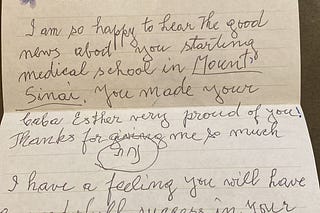 I am so happy to hear the good
news abod you starting
medical school in Mount
Sinai. You made your
baba Esther very proud of you!
Thanks for giving me so much
I have a feeling you will have
success in your